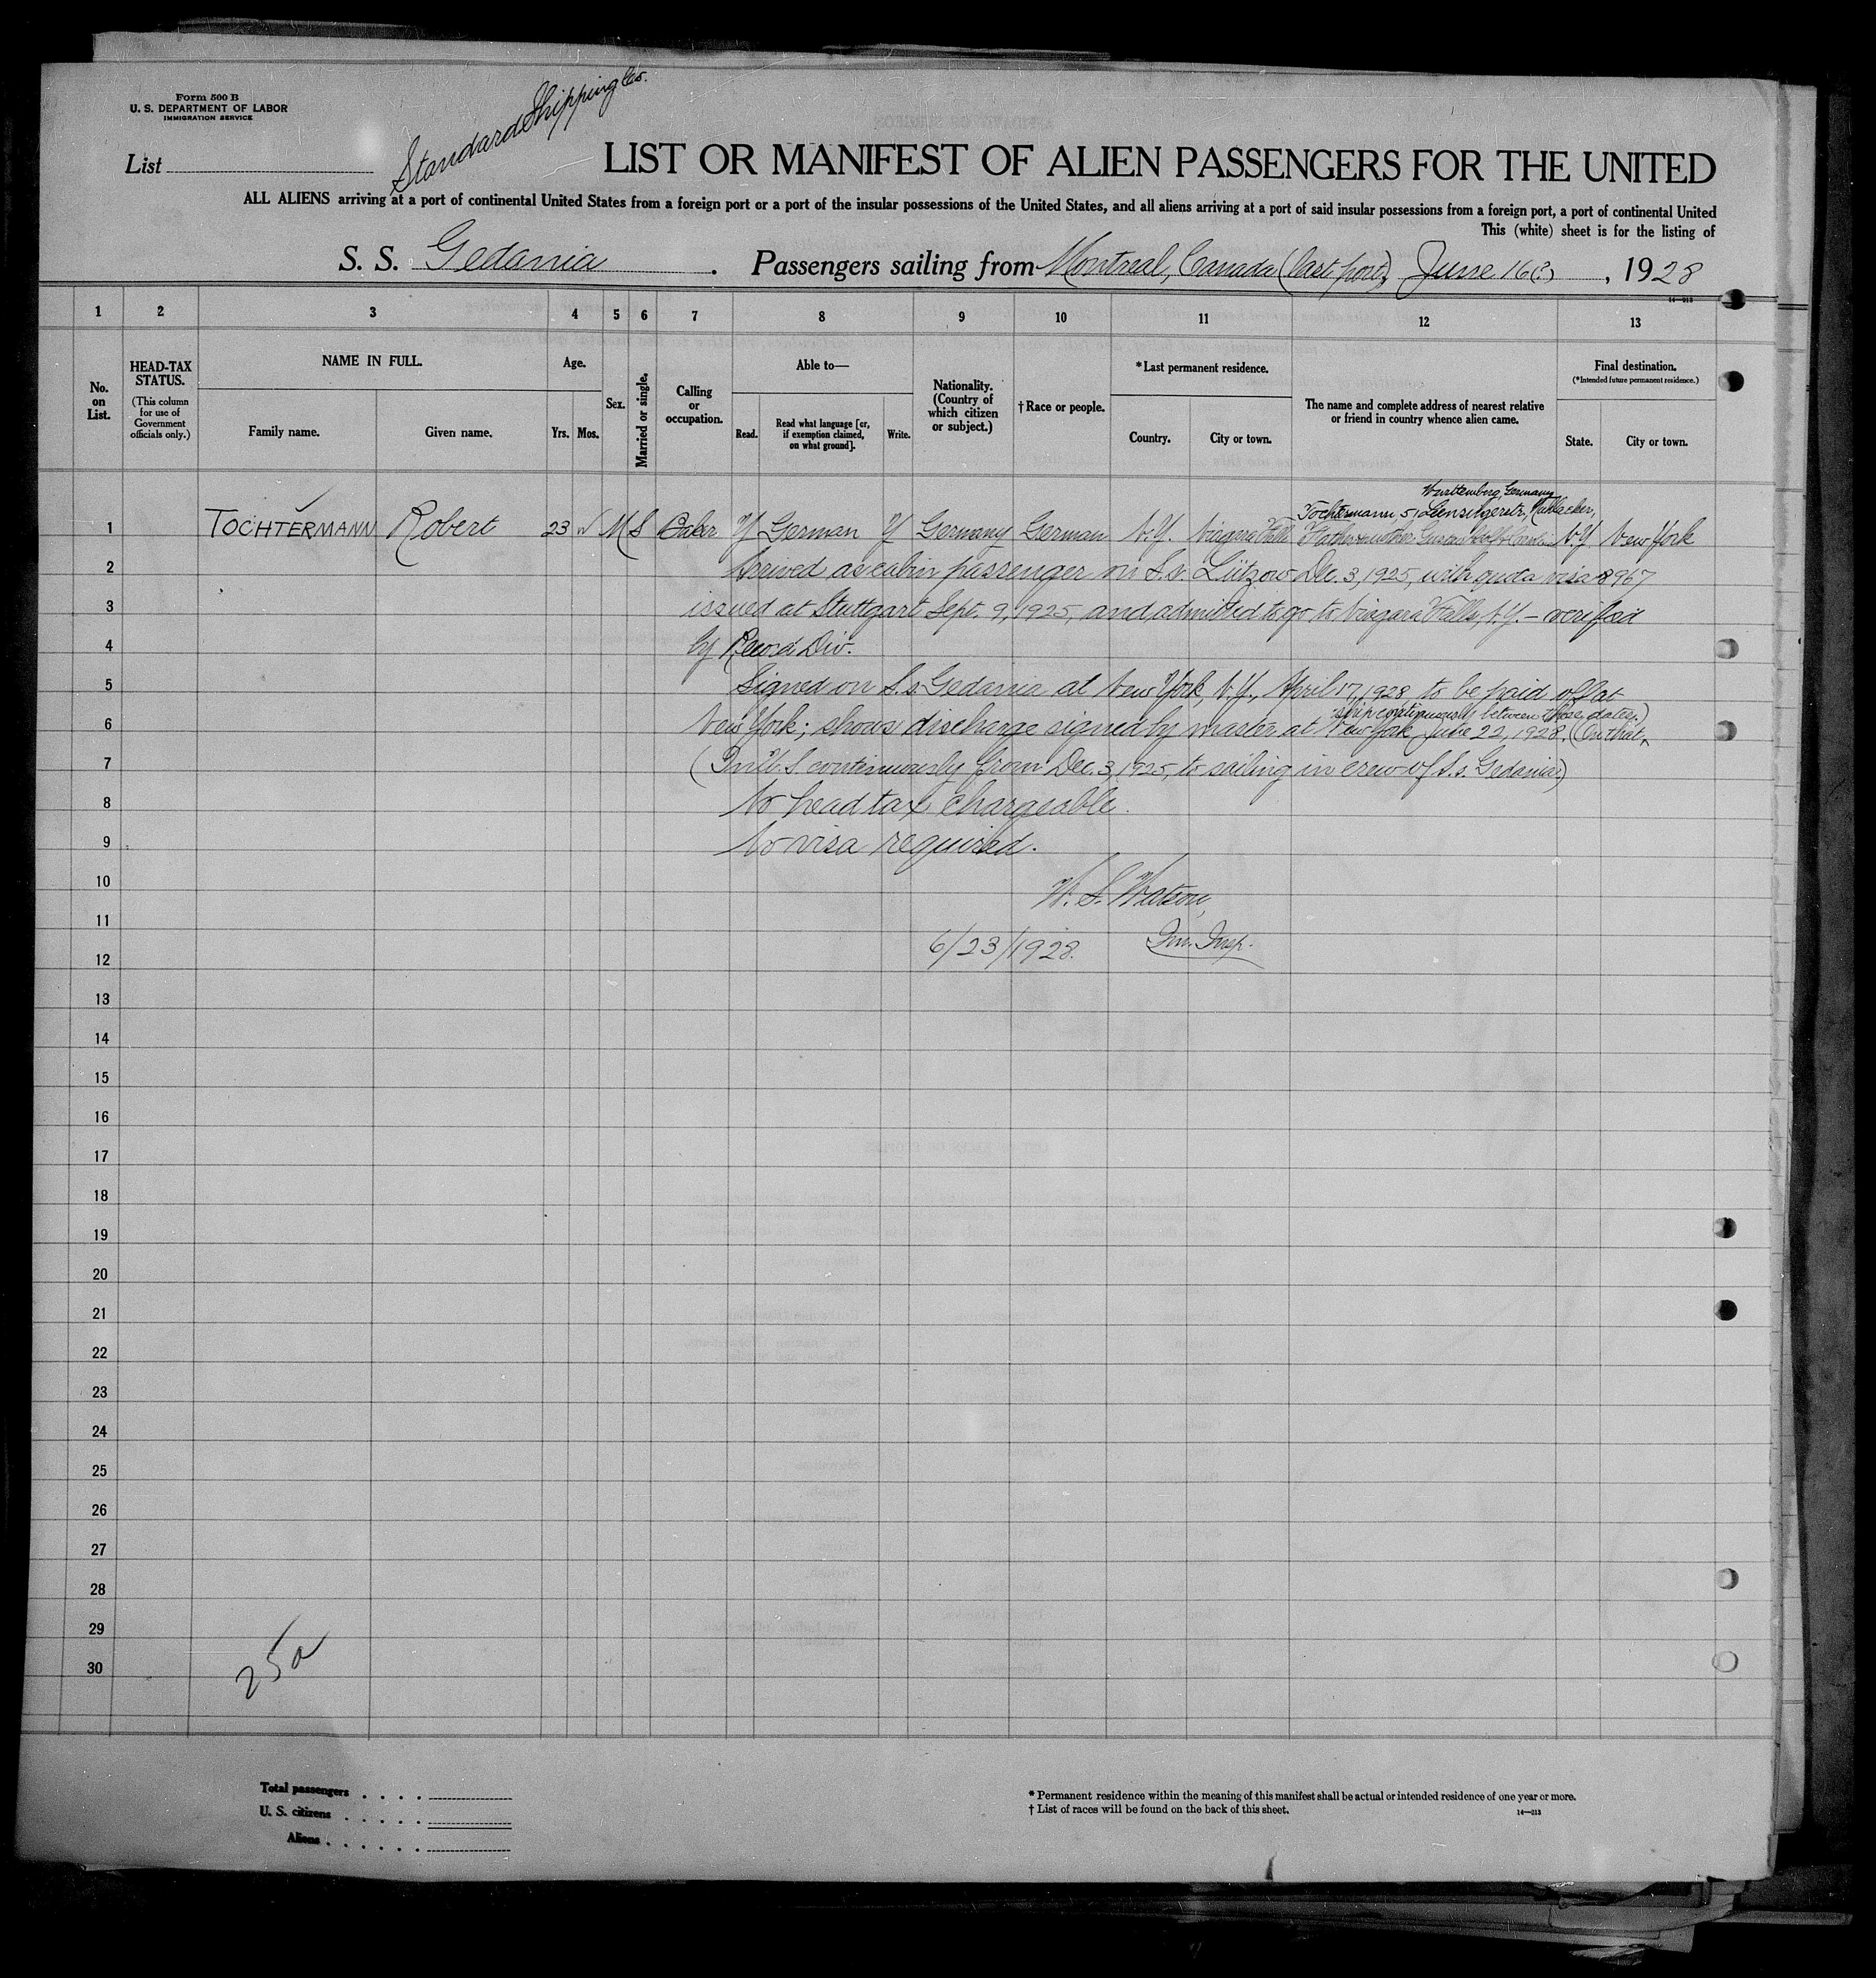 Form 500 B
U. S. DEPARTMENT OF LABOR
IMMIGRATION SERVICE
Standard Shipping Co.
List
LIST OR MANIFEST OF ALIEN PASSENGERS FOR THE UNITED
ALL ALIENS arriving at a port of continental United States from a foreign port or a port of the insular possessions of the United States, and all aliens arriving at a port of said insular possessions from a foreign port, a port of continental United
This (white) sheet is for the listing of
S. S. Gedania. Passengers sailing from Montreal, Canada (last port), June 16(?), 1928
14—213
1 2 3 4 5 6 7 8 9 10 11 12 13
No. on List.
HEAD-TAX STATUS. (This column for use of Government officials only.)
NAME IN FULL.
Family name. Given name.
Age.
Yrs. Mos.
Sex.
Married or single.
Calling or occupation.
Able to—
Read. Read what language [or, if exemption claimed, on what ground]. Write.
Nationality. (Country of which citizen or subject.)
† Race or people.
* Last permanent residence.
Country. City or town.
The name and complete address of nearest relative or friend in country whence alien came.
Final destination.
(*Intended future permanent residence.)
State. City or town.
Württemberg, Germany
Tochtermann, 5, Mühlacker,
1 TOCHTERMANN Robert 23 M S Baker Y German Y Germany German N.Y. Niagara Falls Father & mother: N.Y. New York
2 Arrived as cabin passenger on S.s. Lützow Dec. 3, 1925, with quota visa 8967
3 issued at Stuttgart Sept. 9, 1925, and admitted to go to Niagara Falls, N.Y. – verified
4 by Record Div.
5 Signed on S.s. Gedania at New York, N.Y., April 17, 1928 to be paid off at
ship continuously between those dates.)
6 New York; shows discharge signed by master at New York June 22, 1928. (On that
7 (In U. S. continuously from Dec. 3, 1925, to sailing in crew of S.s. Gedania.)
8 No head tax chargeable.
9 No visa required.
10 W. S. Watson,
11 Im. Insp.
12 6/23/1928.
13
14
15
16
17
18
19
20
21
22
23
24
25
26
27
28
29
30
25a
Total passengers
U. S. citizens
Aliens
* Permanent residence within the meaning of this manifest shall be actual or intended residence of one year or more.
† List of races will be found on the back of this sheet.
14—213